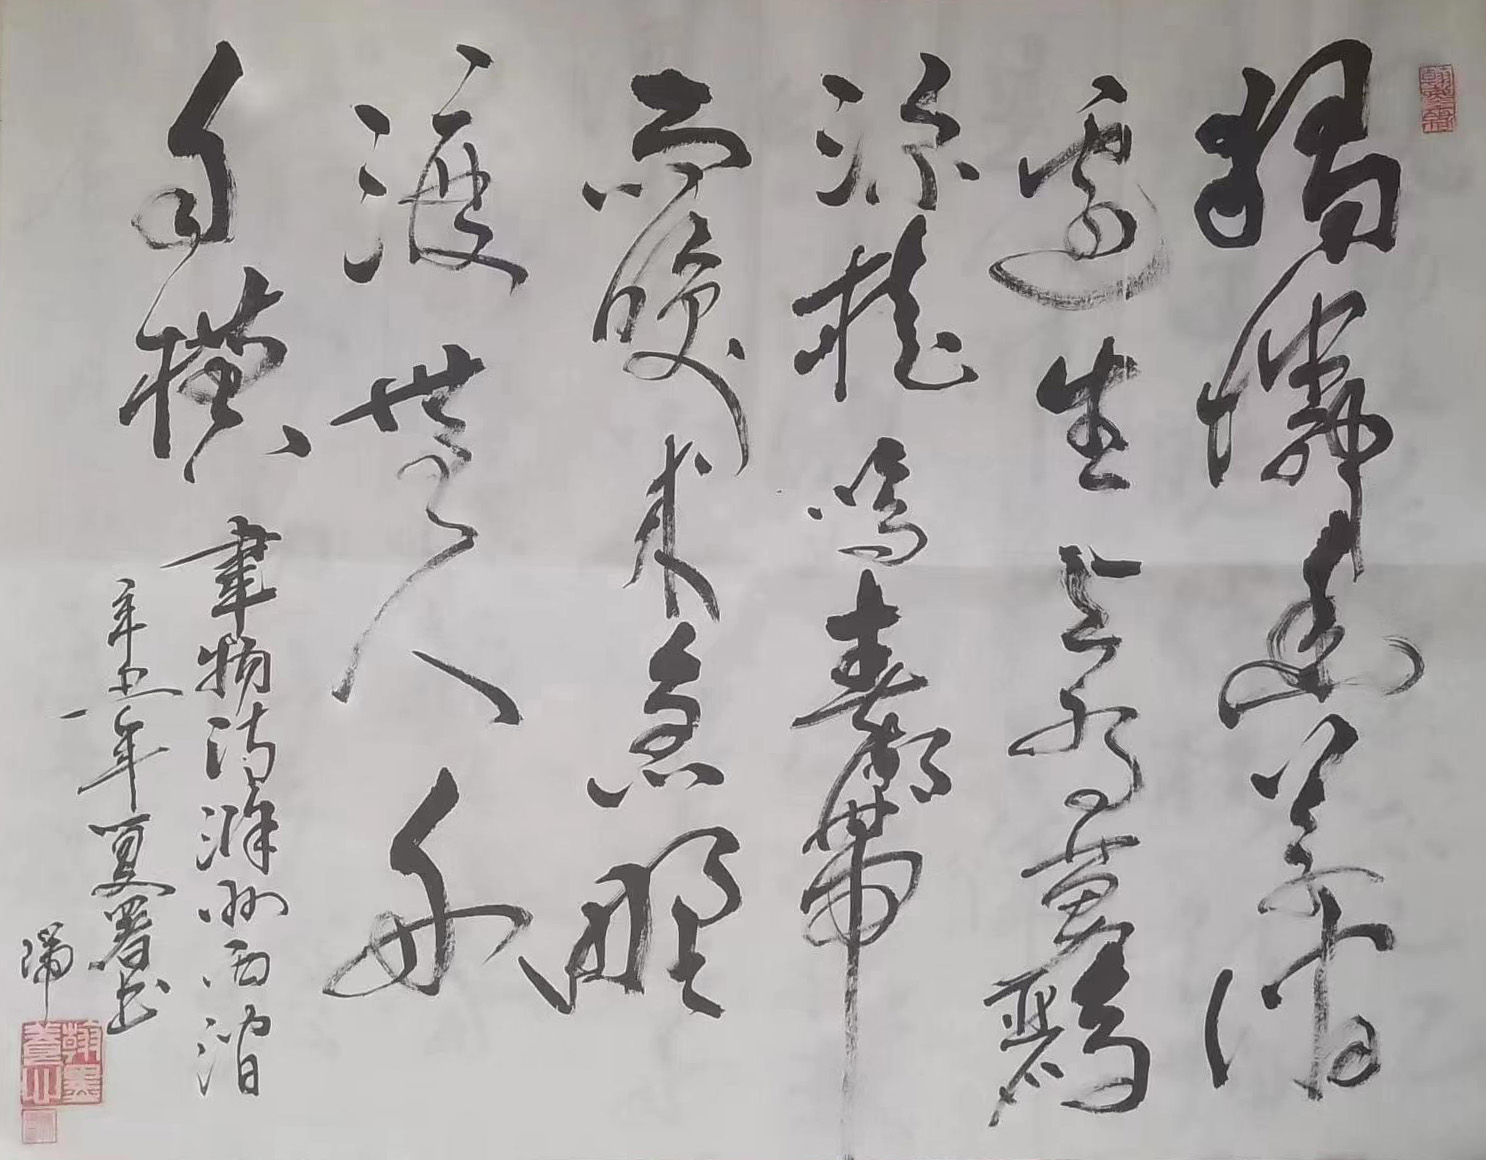 獨憐幽草澗
邊生上有黃鸝
深樹鳴春潮帶
雨晚來急野
渡無人舟
自橫
韋物詩滁州西澗
辛丑年夏暑書
瑞
翰墨